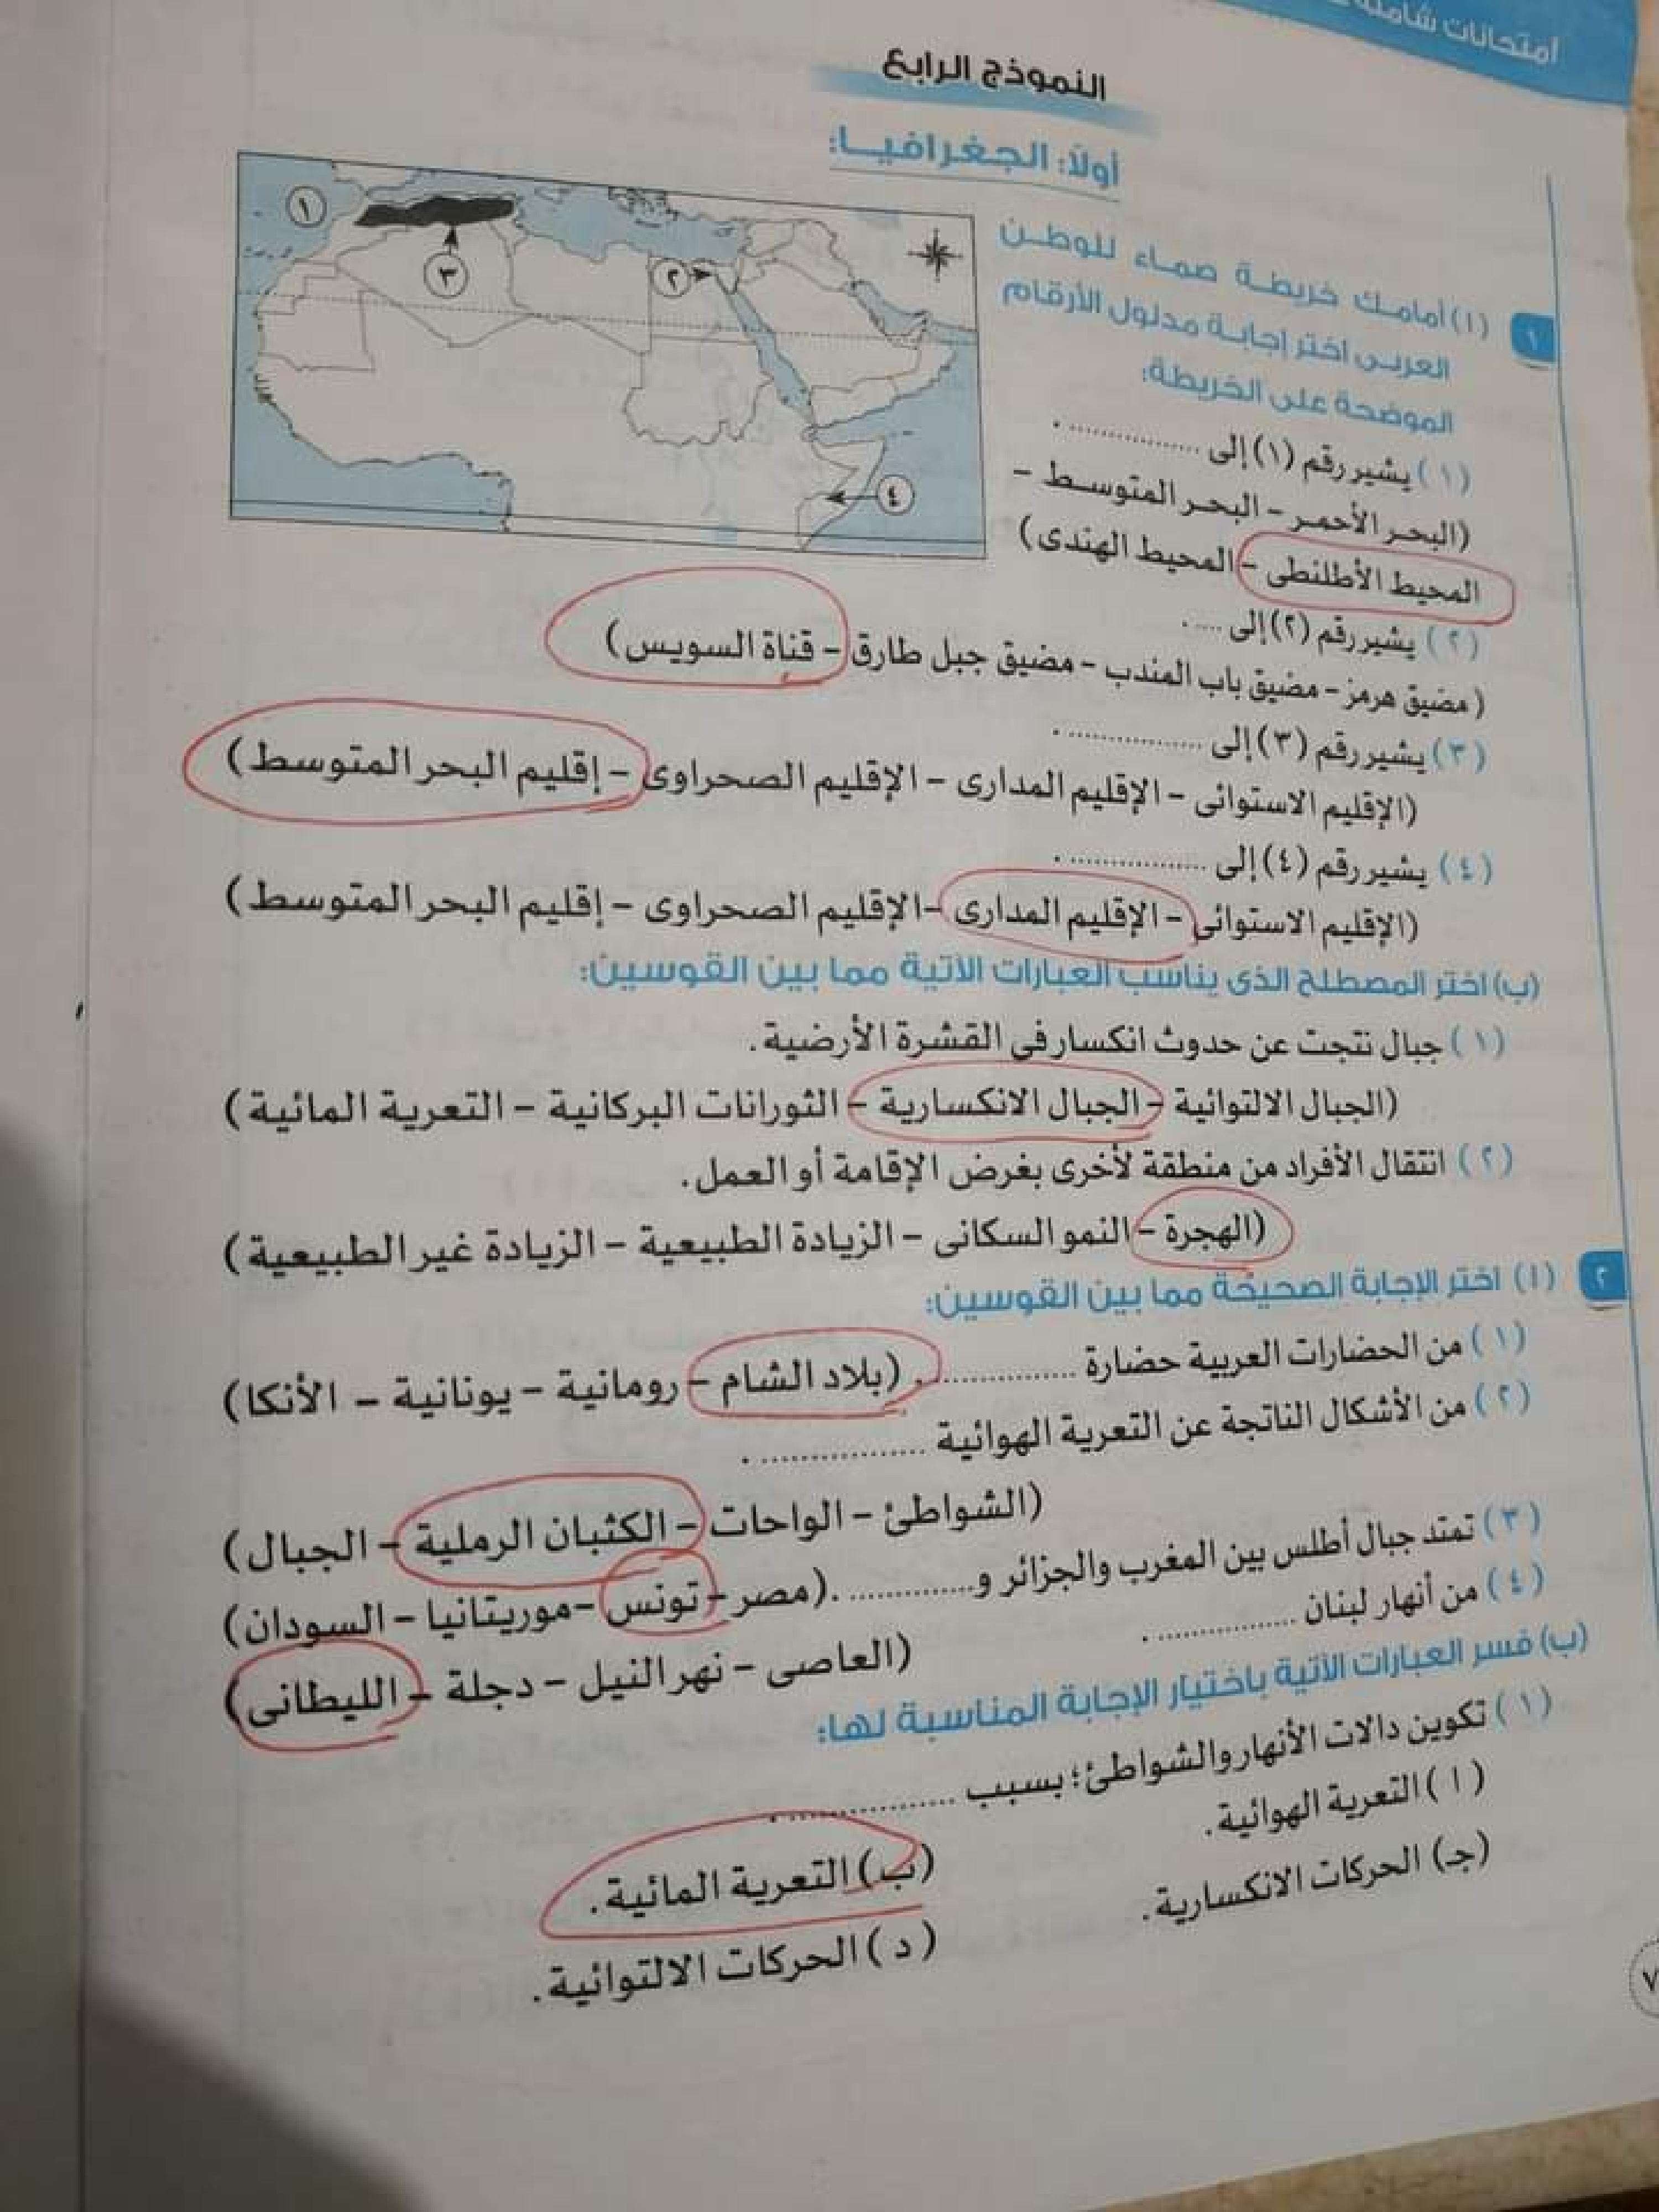 امتحانات شاملة
النموذج الرابع
أولًا: الجغرافيا:
١
(ا) أمامك خريطة صماء للوطن
العربى اختر إجابة مدلول الأرقام
الموضحة على الخريطة:
١
٢
٣
٤
(١) يشير رقم (١) إلى ................ .
(البحر الأحمر - البحر المتوسط -
المحيط الأطلنطى - المحيط الهندى)
(٢) يشير رقم (٢) إلى .... .
(مضيق هرمز - مضيق باب المندب - مضيق جبل طارق - قناة السويس)
(٣) يشير رقم (٣) إلى ................ .
(الإقليم الاستوائى - الإقليم المدارى - الإقليم الصحراوى - إقليم البحر المتوسط)
(٤) يشير رقم (٤) إلى ................ .
(الإقليم الاستوائى - الإقليم المدارى - الإقليم الصحراوى - إقليم البحر المتوسط)
(ب) اختر المصطلح الذى يناسب العبارات الآتية مما بين القوسين:
(١) جبال نتجت عن حدوث انكسار فى القشرة الأرضية.
(الجبال الالتوائية - الجبال الانكسارية - الثورانات البركانية - التعرية المائية)
(٢) انتقال الأفراد من منطقة لأخرى بغرض الإقامة أو العمل.
(الهجرة - النمو السكانى - الزيادة الطبيعية - الزيادة غير الطبيعية)
٢
(ا) اختر الإجابة الصحيحة مما بين القوسين:
(١) من الحضارات العربية حضارة ................ . (بلاد الشام - رومانية - يونانية - الأنكا)
(٢) من الأشكال الناتجة عن التعرية الهوائية ................ .
(الشواطئ - الواحات - الكثبان الرملية - الجبال)
(٣) تمتد جبال أطلس بين المغرب والجزائر و............... . (مصر - تونس - موريتانيا - السودان)
(٤) من أنهار لبنان ................ .
(العاصى - نهر النيل - دجلة - الليطانى)
(ب) فسر العبارات الآتية باختيار الإجابة المناسبة لها:
(١) تكوين دالات الأنهار والشواطئ؛ بسبب ................ .
(ا) التعرية الهوائية.
(ب) التعرية المائية.
(جـ) الحركات الانكسارية.
(د) الحركات الالتوائية.